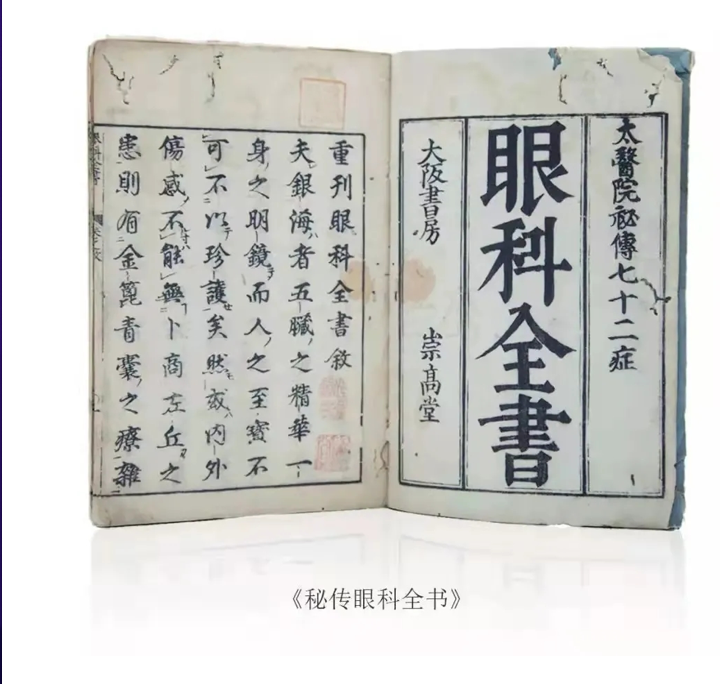 太醫院祕傳七十二症
眼科全書
大阪書房 崇高堂
重刊眼科全書敘
夫銀海者五臟之精華一
身之明鏡而人之至寶不
可不以珍護矣然或內外
傷感不能無卜商左丘之
患則有金篦青囊之療雖
《秘传眼科全书》